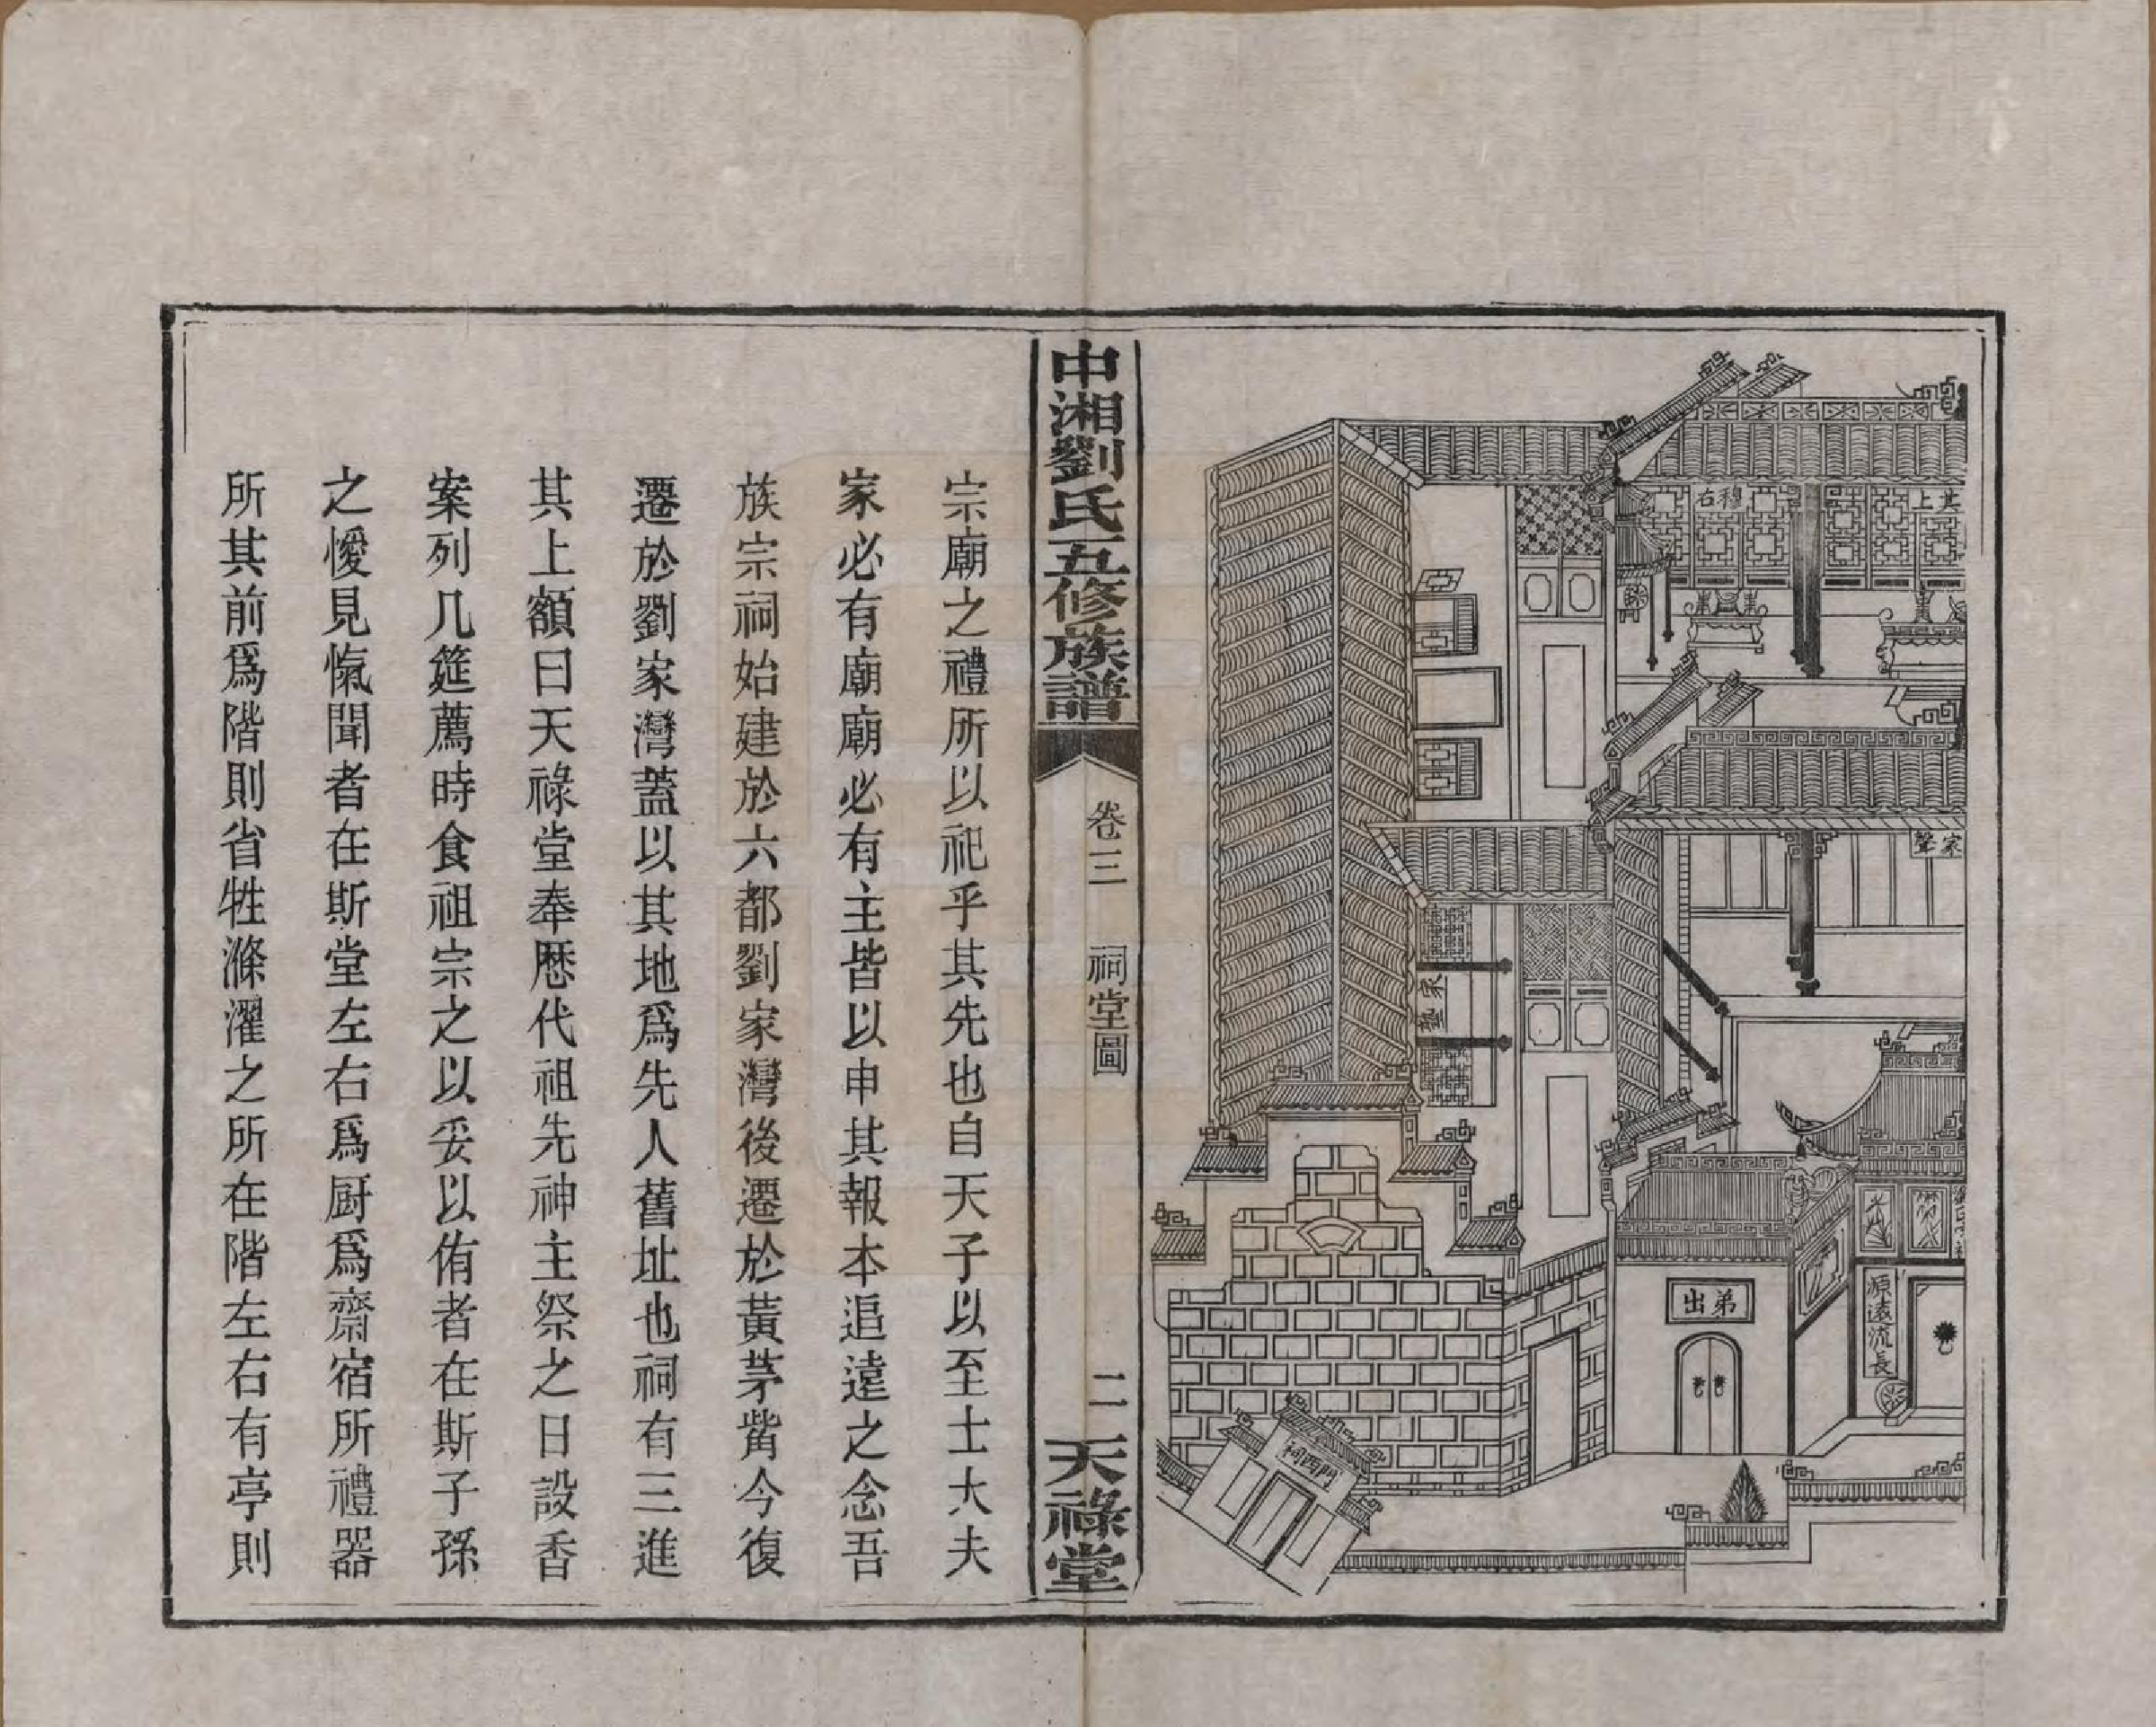 其上
穆右
家聲
家塾
源遠流長
弟出
祠西門
中湘劉氏五修族譜
卷三
祠堂圖
二
天祿堂
宗廟之禮所以祀乎其先也自天子以至士大夫
家必有廟廟必有主皆以申其報本追遠之念吾
族宗祠始建於六都劉家灣後遷於黃茅嵴今復
遷於劉家灣蓋以其地爲先人舊址也祠有三進
其上額曰天祿堂奉歷代祖先神主祭之日設香
案列几筵薦時食祖宗之以妥以侑者在斯子孫
之懓見愾聞者在斯堂左右爲厨爲齋宿所禮器
所其前爲階則省牲滌濯之所在階左右有亭則